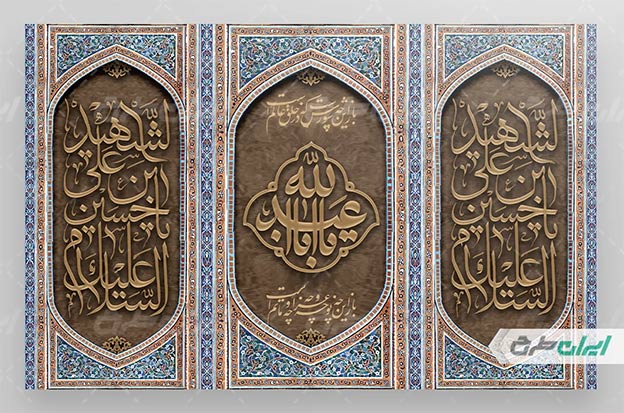 السلام علیک
یا حسین
ابن علی
الشهید
باز این چه شورش است که در خلق عالم است
یا اباعبدالله
باز این چه نوحه و چه عزا و چه ماتم است
السلام علیک
یا حسین
ابن علی
الشهید
ایران طرح